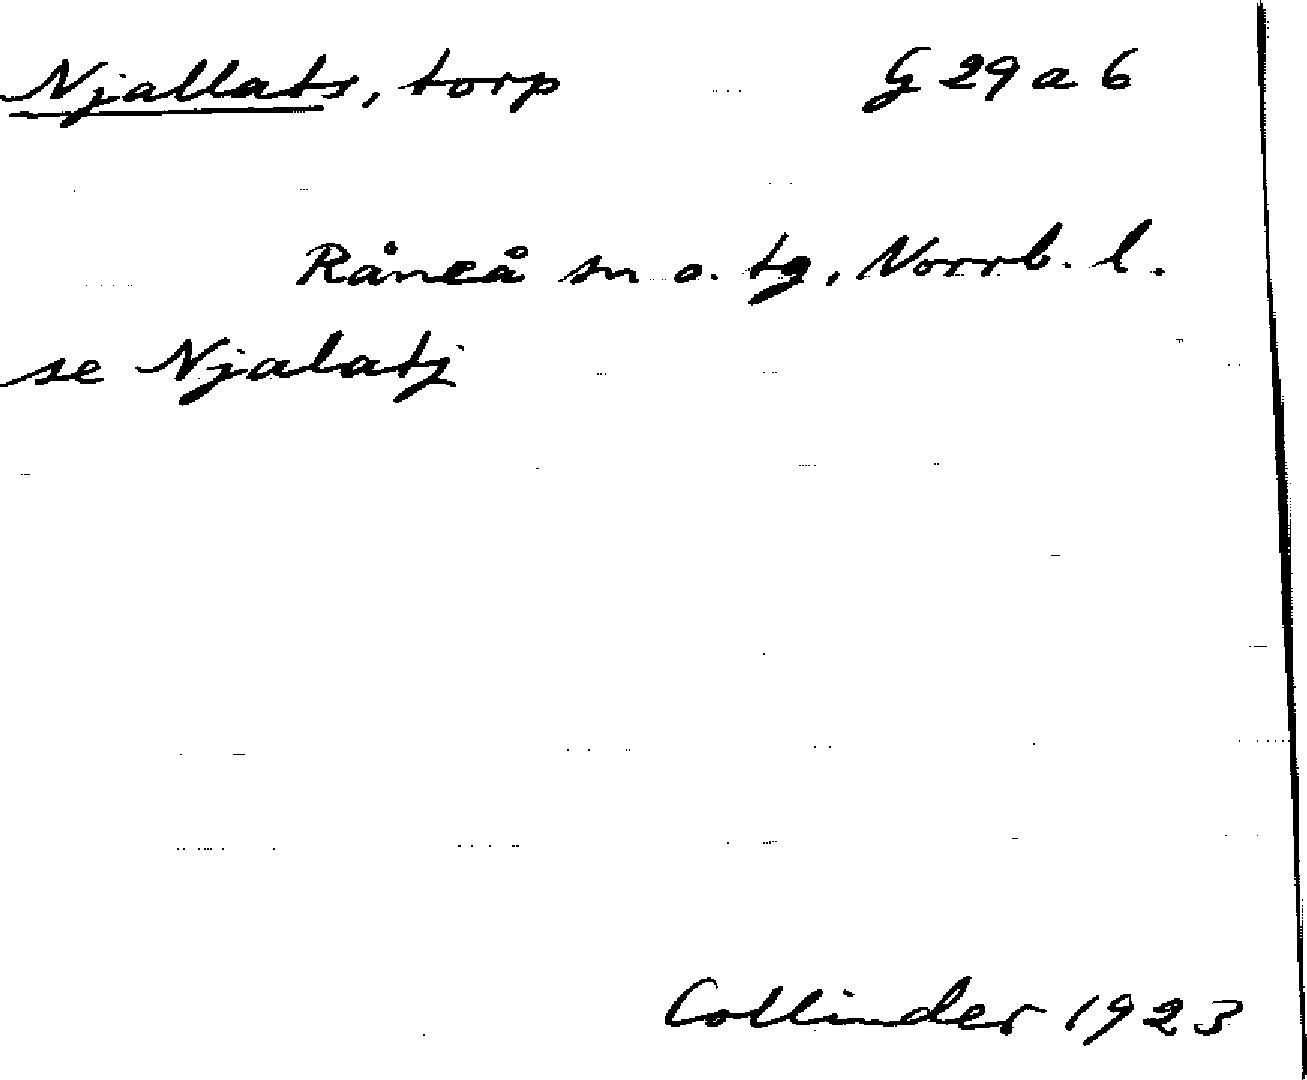 Njallats, torp G 29 a 6
Råneå sn o. tg, Norrb. l.
se Njalatj
Collinder 1923